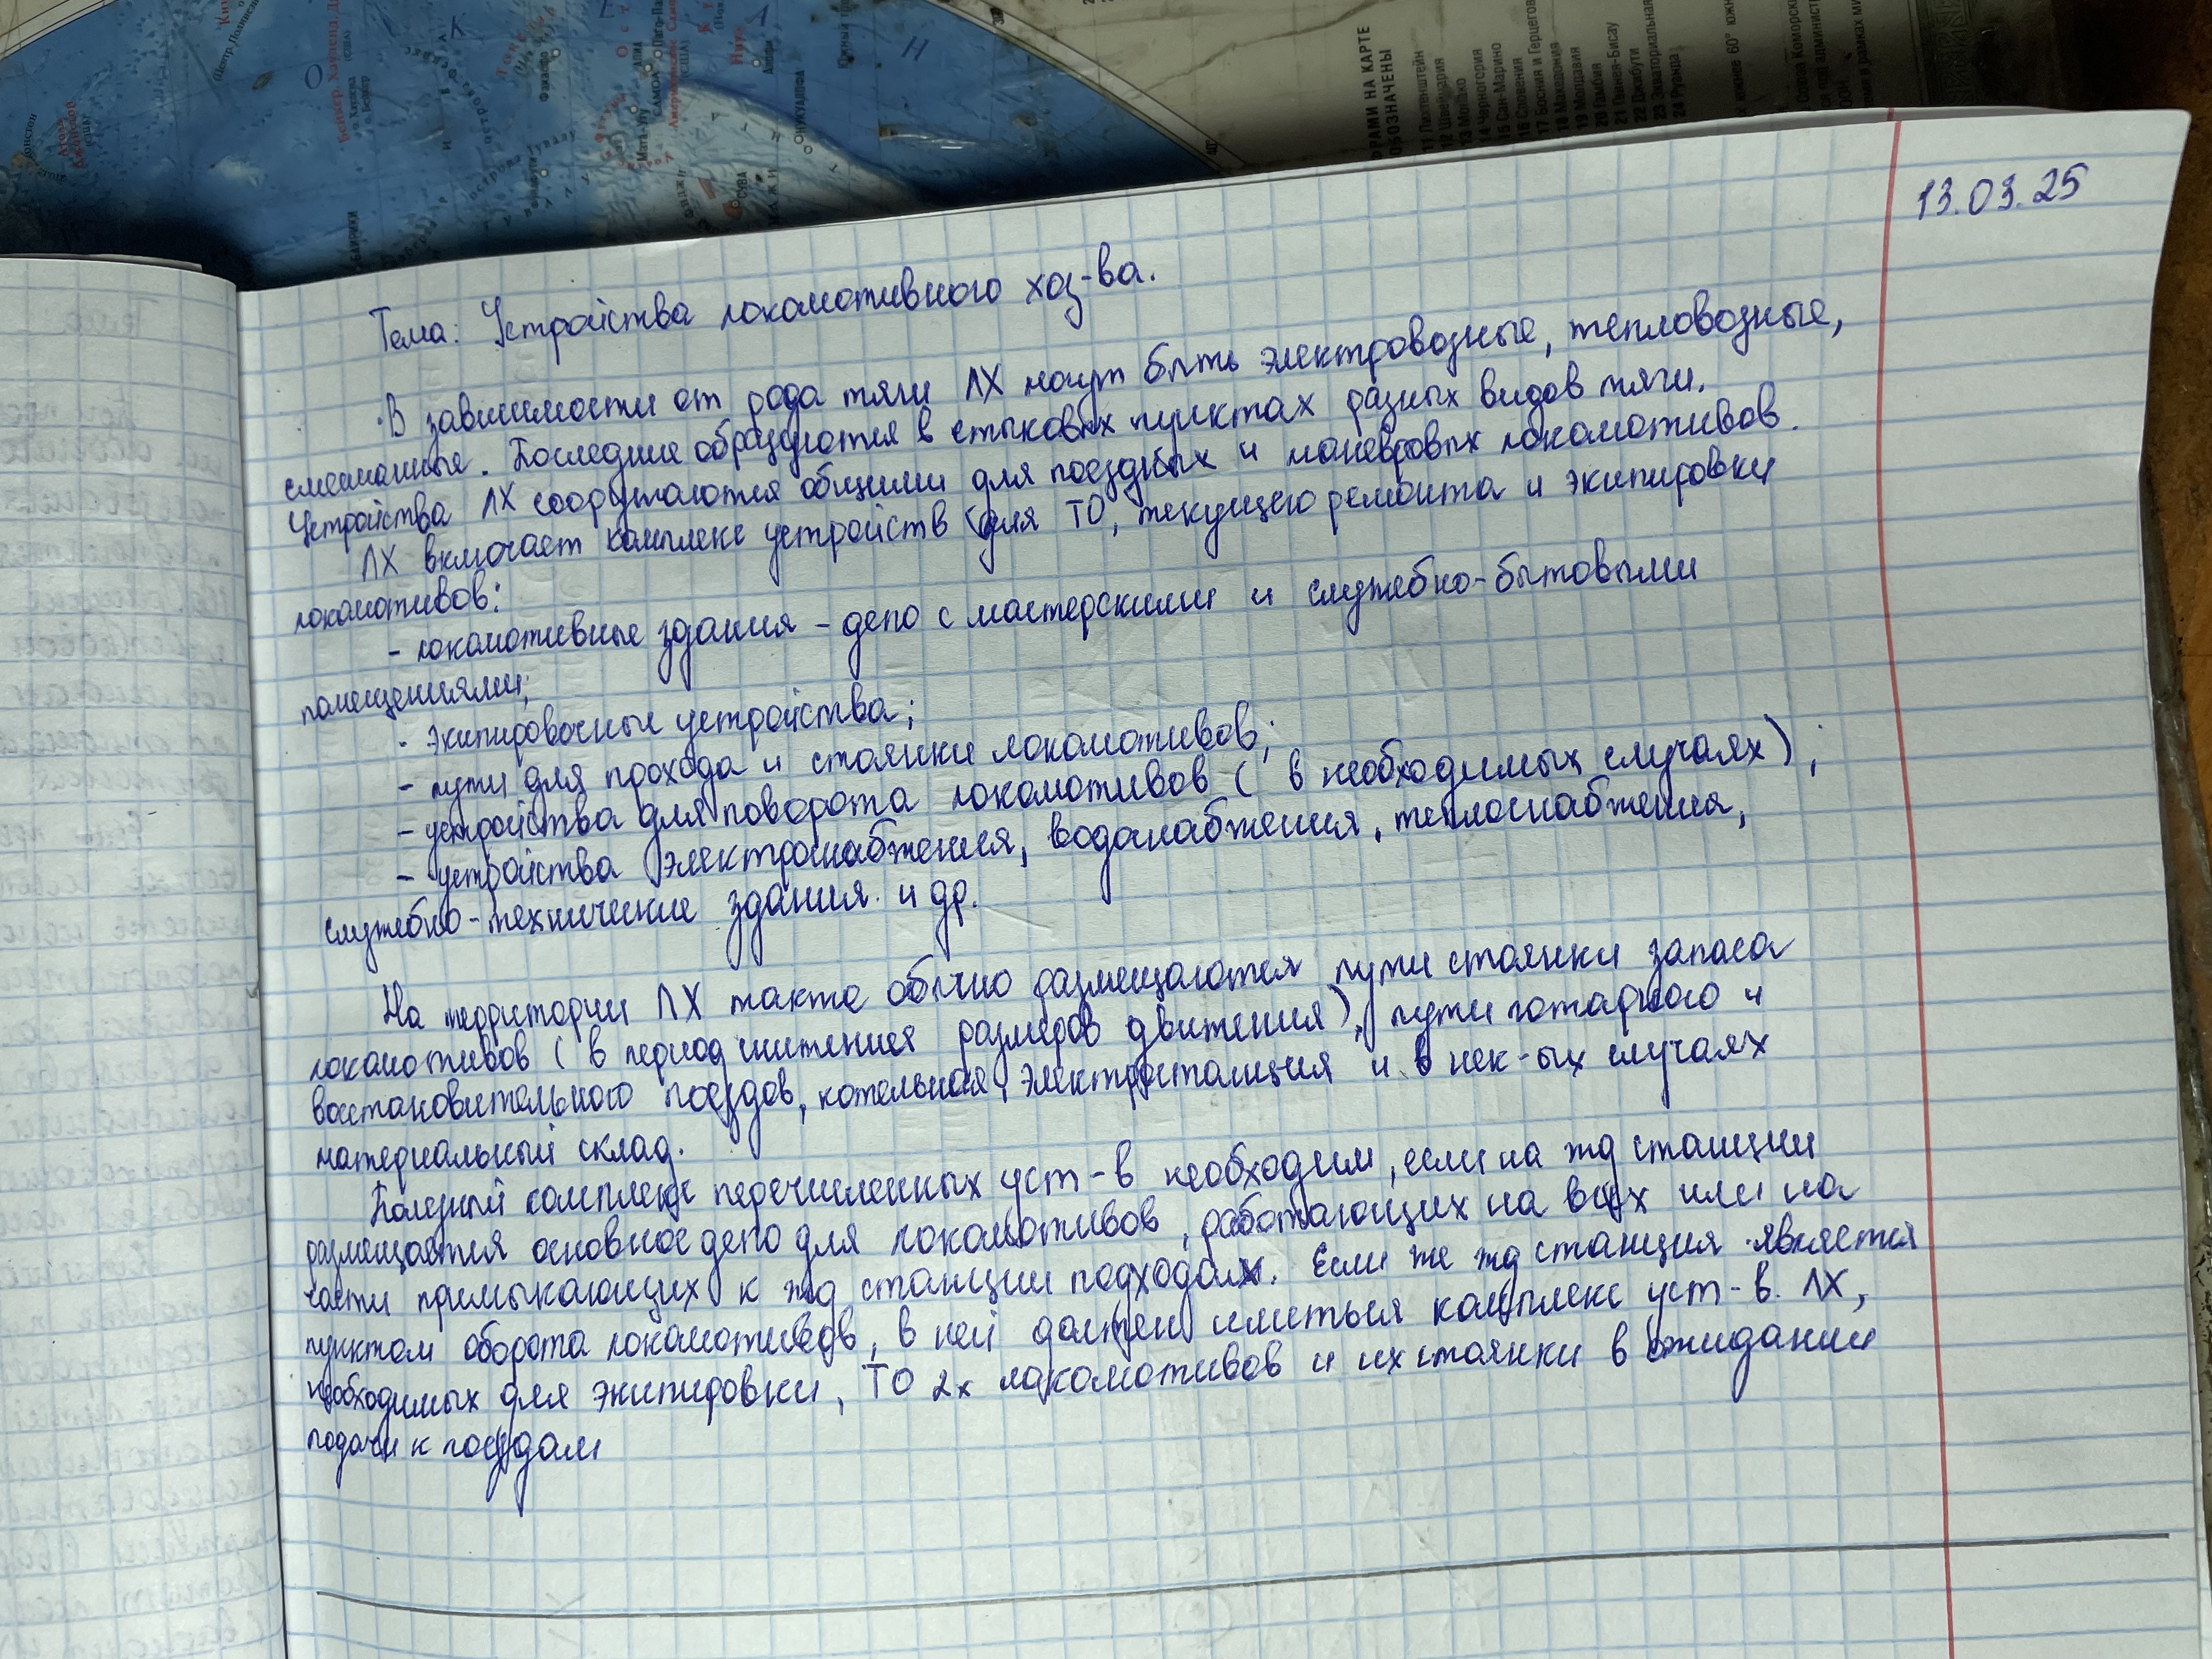 13.03.25
Тема: Устройства локомотивного хоз-ва.
В зависимости от рода тяги ЛХ могут быть электровозные, тепловозные,
смешанные. Последние образуются в стыковых пунктах разных видов тяги.
Устройства ЛХ сооружаются общими для поездных и маневровых локомотивов.
ЛХ включает комплекс устройств для ТО, текущего ремонта и экипировки
локомотивов:
- локомотивные здания - депо с мастерскими и служебно-бытовыми
помещениями;
- экипировочные устройства;
- пути для прохода и стоянки локомотивов;
- устройства для поворота локомотивов (в необходимых случаях);
- устройства электроснабжения, водоснабжения, теплоснабжения,
служебно-технические здания и др.
На территории ЛХ также обычно размещаются пути стоянки запаса
локомотивов (в период снижения размеров движения), пути пожарного и
восстановительного поездов, котельная, электростанция и в нек-ых случаях
материальный склад.
Полный комплекс перечисленных уст-в необходим, если на жд станции
размещается основное депо для локомотивов, работающих на всех или на
части примыкающих к жд станции подходах. Если же жд станция является
пунктом оборота локомотивов, в ней должен иметься комплекс уст-в ЛХ,
необходимых для экипировки, ТО 2х локомотивов и их стоянки в ожидании
подачи к поездам
ОРАМИ НА КАРТЕ
ОБОЗНАЧЕНЫ
11 Лихтенштейн
12 Швейцария
13 Монако
14 Черногория
15 Сан-Марино
16 Словения
17 Босния и Герцегов
18 Македония
19 Молдавия
20 Гамбия
21 Гвинея-Бисау
22 Джибути
23 Экваториальная
24 Руанда
СУВА
НУКУАЛОФА
Мата-Уту
Фунафути